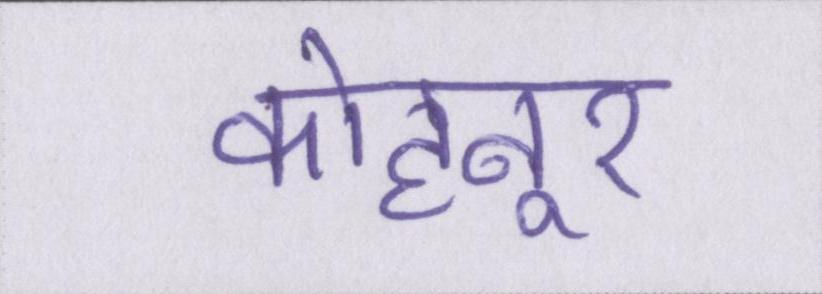 कोहनूर